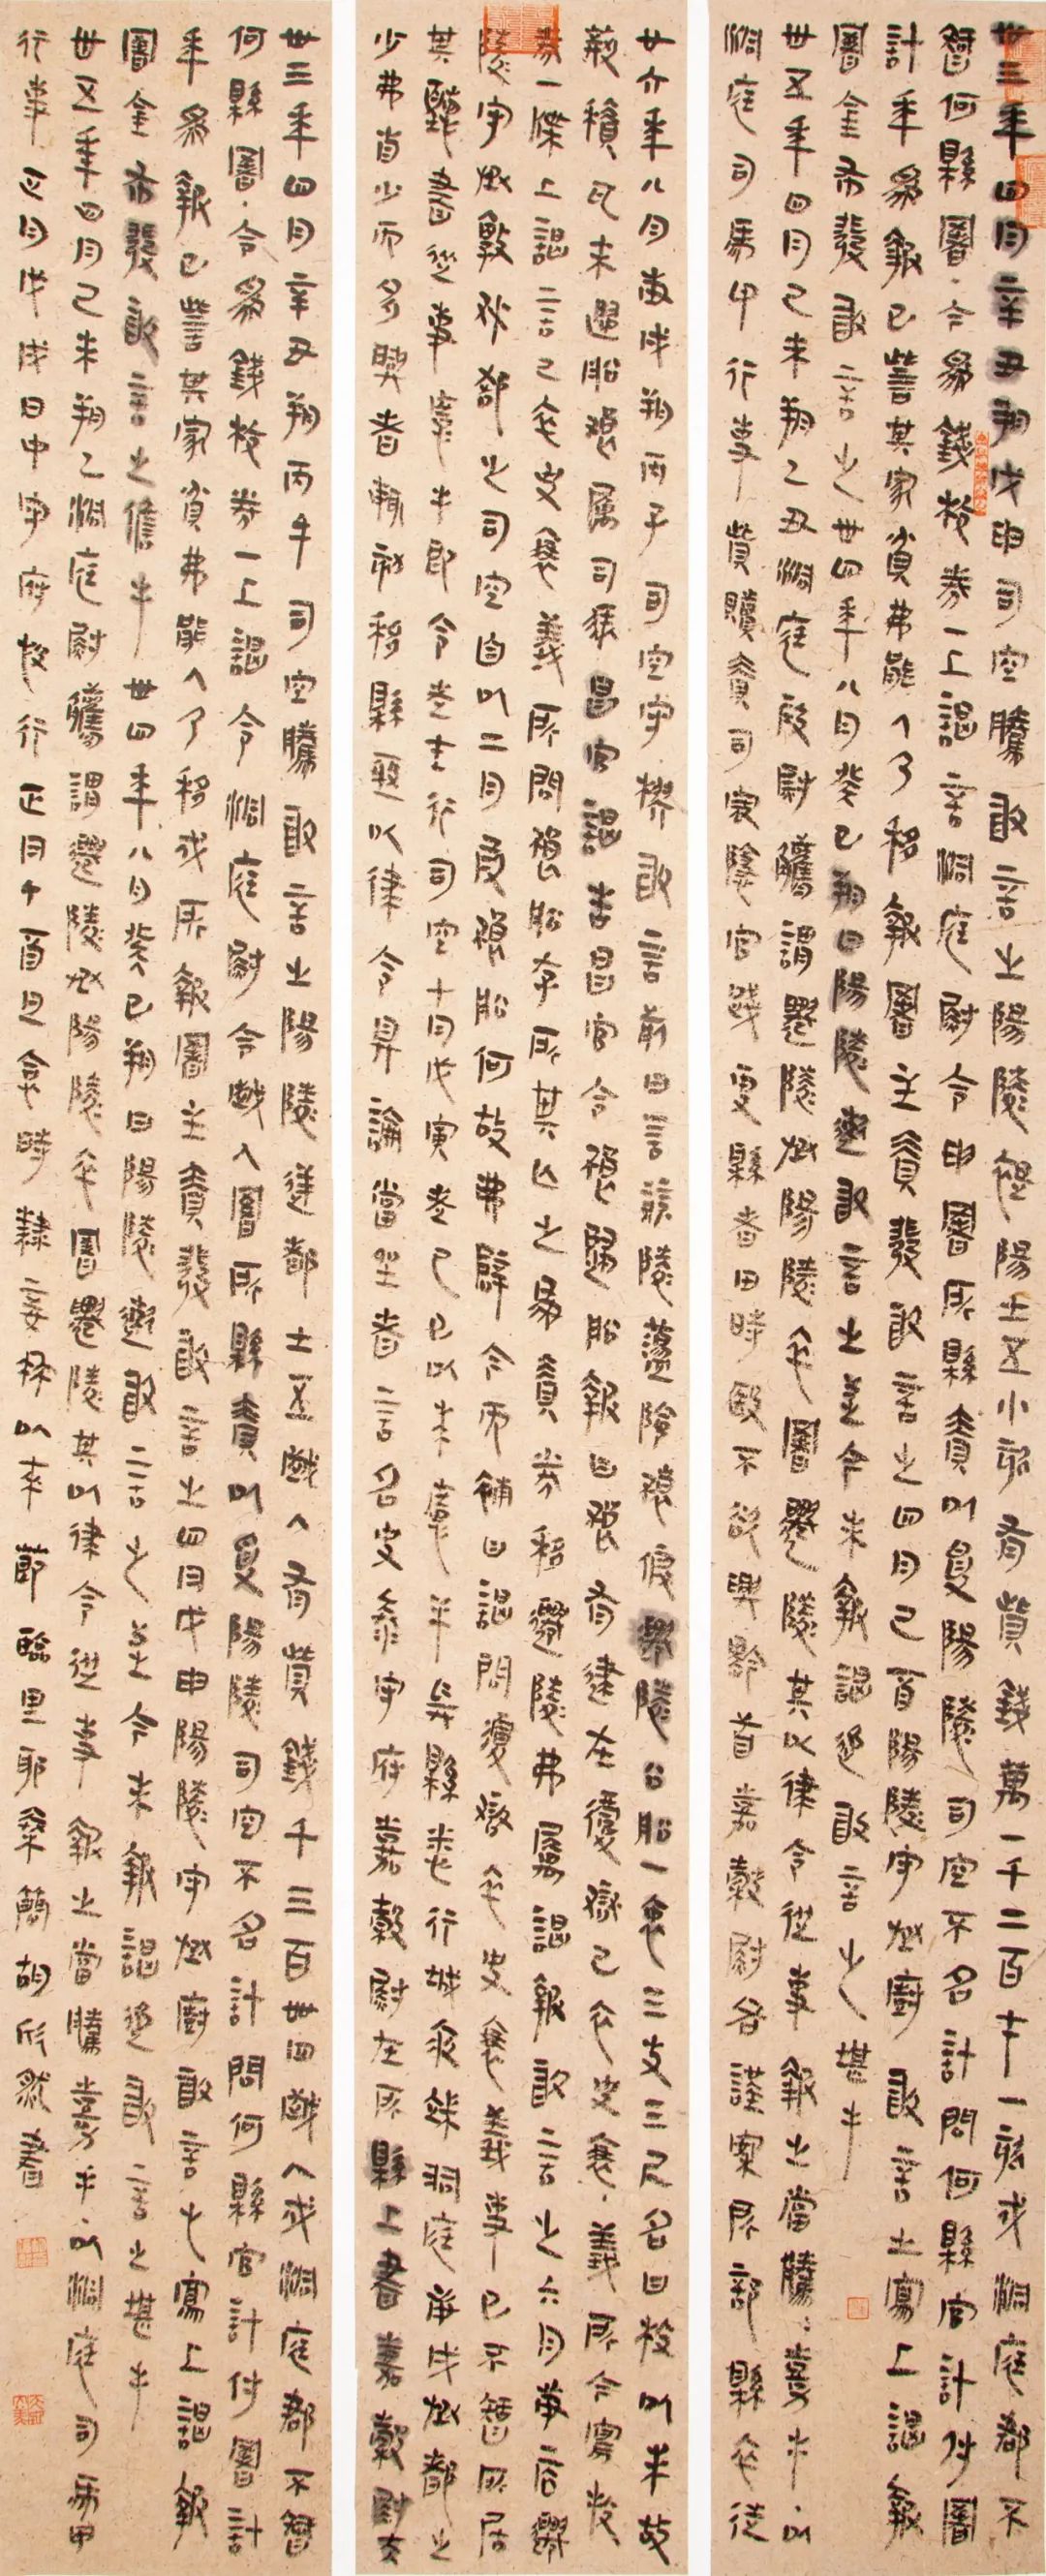 卅三年四月辛丑朔戊申司空騰敢言之陽陵褆陽士五小欬有貲錢萬一千二百七十一欬戍洞庭郡不
智何縣署今為錢校券一上謁言洞庭尉令申署所縣責以受陽陵司空不名計問何縣官計付署
計年為報已訾其家貧弗能入乃移戍所報署主責發敢言之四月己酉陽陵守丞廚敢言之寫上謁報
署金布發敢言之卅四年八月癸巳朔日陽陵遫敢言之至今未報謁追敢言之堪手
卅五年四月己未朔乙丑洞庭叚尉觿謂遷陵丞陽陵卒署遷陵其以律令從事報之當騰嘉手以
洞庭司馬印行事貲贖責司寇隱官踐更縣者田時殹不欲興黔首嘉穀尉各謹案所部縣卒徒
廿六年八月庚戌朔丙子司空守樛敢言前日言競陵蘯陰狼假遷陵公船一袤三丈三尺名曰枚以求故
荊積瓦未歸船狼屬司馬昌官謁告昌官令狼歸船報曰狼有逮在覆獄己卒史衰義所今寫校
券一牒上謁言己卒史衰義所問狼船存所其亡之為責券移遷陵弗屬謁報敢言之六月庚辰遷
陵守丞敦狐郤之司空自以二月叚狼船何故弗辟今而補曰謁問覆獄卒史衰義事已不智所居
其聽書從事慶手即令走行司空十月戊寅走己巳以來慶半兵縣行城洞庭之
少弗肖少而多興者輒劾移縣亟以律令具論當坐者言名夬泰守府嘉穀尉在所縣上書嘉穀尉夬
卅三年四月辛丑朔丙午司空騰敢言之陽陵逆都士五鹽人有貲錢千三百卌四鹽人戍洞庭郡不智
何縣署今為錢校券一上謁令洞庭尉令鹽人署所縣責以受陽陵司空不名計問何縣官計付署計
年為報已訾其家貧弗能入乃移戍所報署主責發敢言之四月戊申陽陵守丞廚敢言之寫上謁報
署金布發敢言之儋手卅四年八月癸巳朔日陽陵遫敢言之至今未報謁追敢言之堪手
卅五年四月己未朔乙洞庭尉觿謂遷陵丞陽陵卒署遷陵其以律令從事報之當騰嘉手以洞庭司馬印
行事正月戊戌日中守府快行正月丁酉旦食時隸妾冉以來節臨里耶秦簡胡欣然書